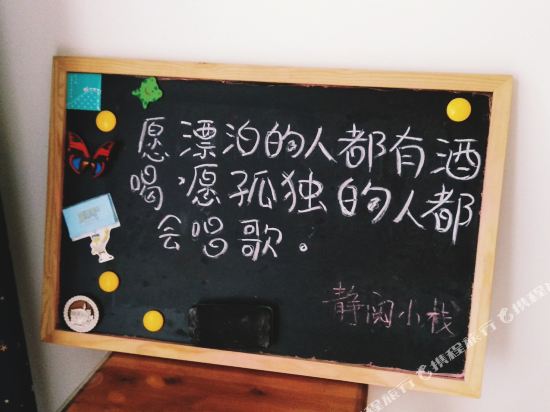 愿漂泊的人都有酒
喝,愿孤独的人都
会唱歌。
静阅小栈
携程旅行 携程旅行